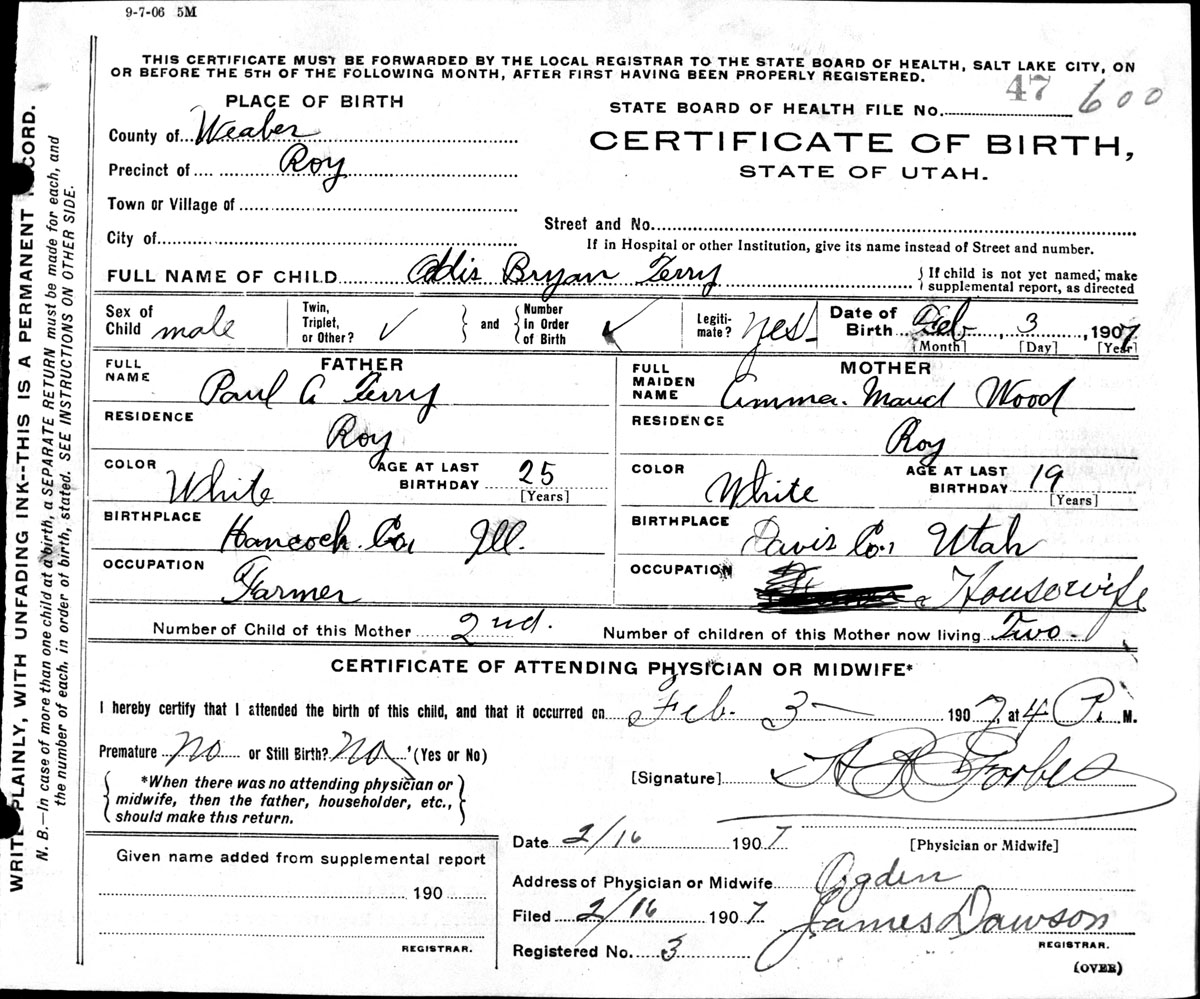 9-7-06 5M
THIS CERTIFICATE MUST BE FORWARDED BY THE LOCAL REGISTRAR TO THE STATE BOARD OF HEALTH, SALT LAKE CITY, ON
OR BEFORE THE 5TH OF THE FOLLOWING MONTH, AFTER FIRST HAVING BEEN PROPERLY REGISTERED.
47 600
PLACE OF BIRTH
STATE BOARD OF HEALTH FILE No.
County of Weaber
CERTIFICATE OF BIRTH,
Precinct of Roy
STATE OF UTAH.
Town or Village of
Street and No.
City of
If in Hospital or other Institution, give its name instead of Street and number.
FULL NAME OF CHILD Oddis Bryan Terry
{ If child is not yet named, make
supplemental report, as directed
Sex of Child male
Twin, Triplet, or Other? ✓
} and {
Number in Order of Birth ✓
Legiti-mate? Yes
Date of Birth Feb. 3, 1907
[Month] [Day] [Year]
FATHER
FULL NAME Paul A Terry
RESIDENCE
Roy
COLOR White
AGE AT LAST BIRTHDAY 25
[Years]
BIRTHPLACE Hancock Co, Ill.
OCCUPATION
Farmer
MOTHER
FULL MAIDEN NAME Amma. Maud Wood
RESIDENCE
Roy
COLOR White
AGE AT LAST BIRTHDAY 19
[Years]
BIRTHPLACE Davis Co, Utah
OCCUPATION Housewife
Number of Child of this Mother 2nd.
Number of children of this Mother now living Two.
CERTIFICATE OF ATTENDING PHYSICIAN OR MIDWIFE*
I hereby certify that I attended the birth of this child, and that it occurred on Feb. 3 1907, at 4 P. M.
Premature no or Still Birth? no (Yes or No)
[Signature] A R Forbes
{ *When there was no attending physician or
midwife, then the father, householder, etc.,
should make this return. }
Date 2/16 1907
[Physician or Midwife]
Given name added from supplemental report
190
REGISTRAR.
Address of Physician or Midwife Ogden
Filed 2/16 1907. James Dawson
REGISTRAR.
Registered No. 3
(OVER)
WRITE PLAINLY, WITH UNFADING INK--THIS IS A PERMANENT RECORD.
N. B.—In case of more than one child at a birth, a SEPARATE RETURN must be made for each, and
the number of each, in order of birth, stated. SEE INSTRUCTIONS ON OTHER SIDE.